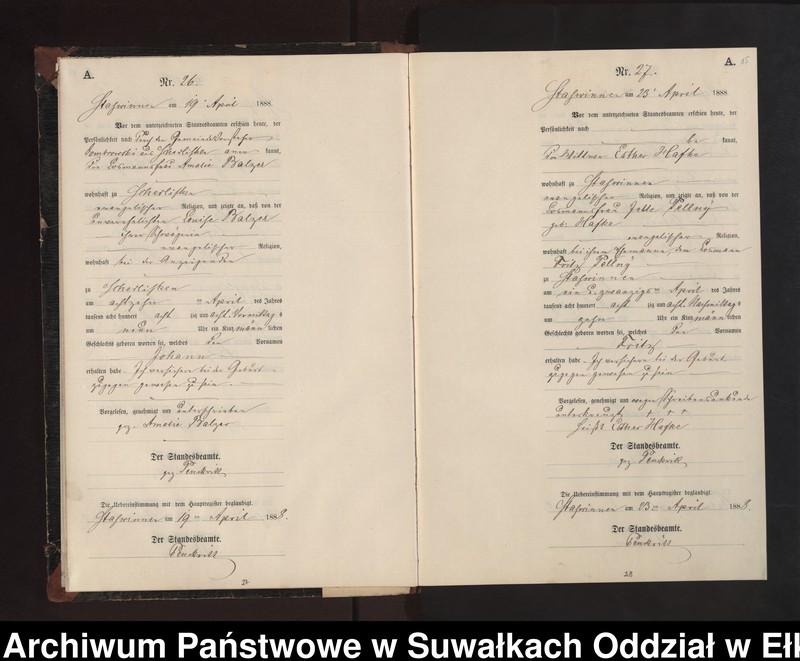 A.
Nr. 26.
am 19. April 1888.
Vor dem unterzeichneten Standesbeamten erschien heute, der
Persönlichkeit nach durch den Gemeindevorsteher
kannt,
Amalie Balzer
wohnhaft zu
evangelischer Religion, und zeigte an, daß von der
unverehelichten Louise Balzer
ihrer Schwägerin
evangelischer Religion,
wohnhaft bei der Anzeigenden
zu
am achtzehnten April des Jahres
tausend acht hundert acht zig und acht Vormittags
um neun Uhr ein Kind männlichen
Geschlechts geboren worden sei, welches den Vornamen
Johann
erhalten habe. Ich versichere bei der Geburt
zugegen gewesen zu sein.
Vorgelesen, genehmigt und unterschrieben
gez. Amalie Balzer
Der Standesbeamte.
gez.
Die Uebereinstimmung mit dem Hauptregister beglaubigt.
am 19ten April 1888.
Der Standesbeamte.
A.
Nr. 27.
am 23. April 1888
Vor dem unterzeichneten Standesbeamten erschien heute, der
Persönlichkeit nach
be kannt,
die Wittwe Esther Hafke
wohnhaft zu
evangelischer Religion, und zeigte an, daß von der
Losmannsfrau Jette Pellny
geb. Hafke
evangelischer Religion,
wohnhaft bei ihrem Ehemanne, dem Losmann
Fritz Pellny
zu
am ein u. zwanzigsten April des Jahres
tausend acht hundert acht zig und acht Nachmittags
um zehn Uhr ein Kind männlichen
Geschlechts geboren worden sei, welches den Vornamen
Fritz
erhalten habe. Ich versichere bei der Geburt
zugegen gewesen zu sein
Vorgelesen, genehmigt und wegen Schreibensunkunde
unterkreuzt + + +
heißt Esther Hafke
Der Standesbeamte.
gez.
Die Uebereinstimmung mit dem Hauptregister beglaubigt.
am 23ten April 1888.
Der Standesbeamte.
28
Archiwum Państwowe w Suwałkach Oddział w Ełk